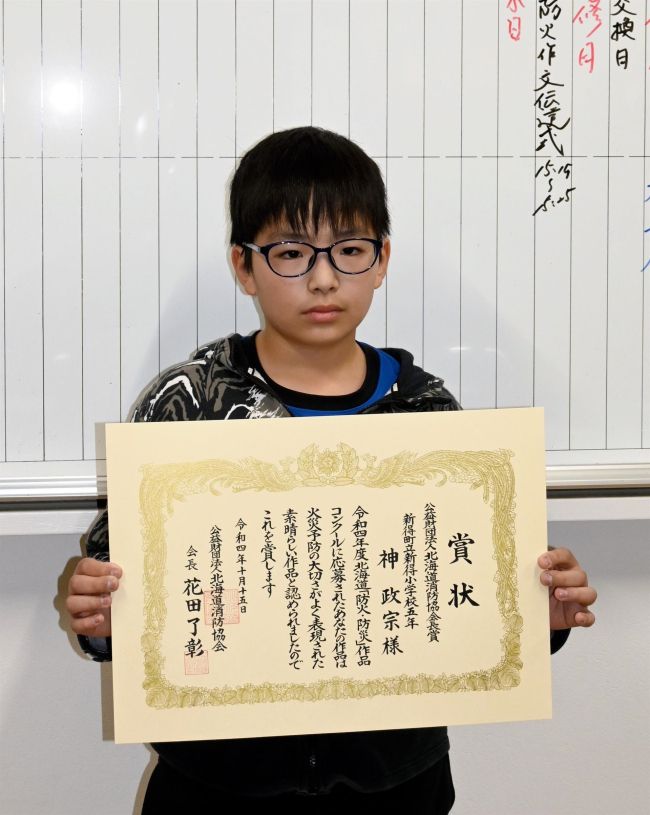 交換日
修 日
日
防火作文伝達式
15:15
賞状
公益財団法人北海道消防協会長賞
新得町立新得小学校五年
神政宗様
令和四年度北海道「防火・防災」作品
コンクールに応募されたあなたの作品は
火災予防の大切さがよく表現された
素晴らしい作品と認められましたので
これを賞します
令和四年十月十五日
公益財団法人北海道消防協会
会長 花田了彰